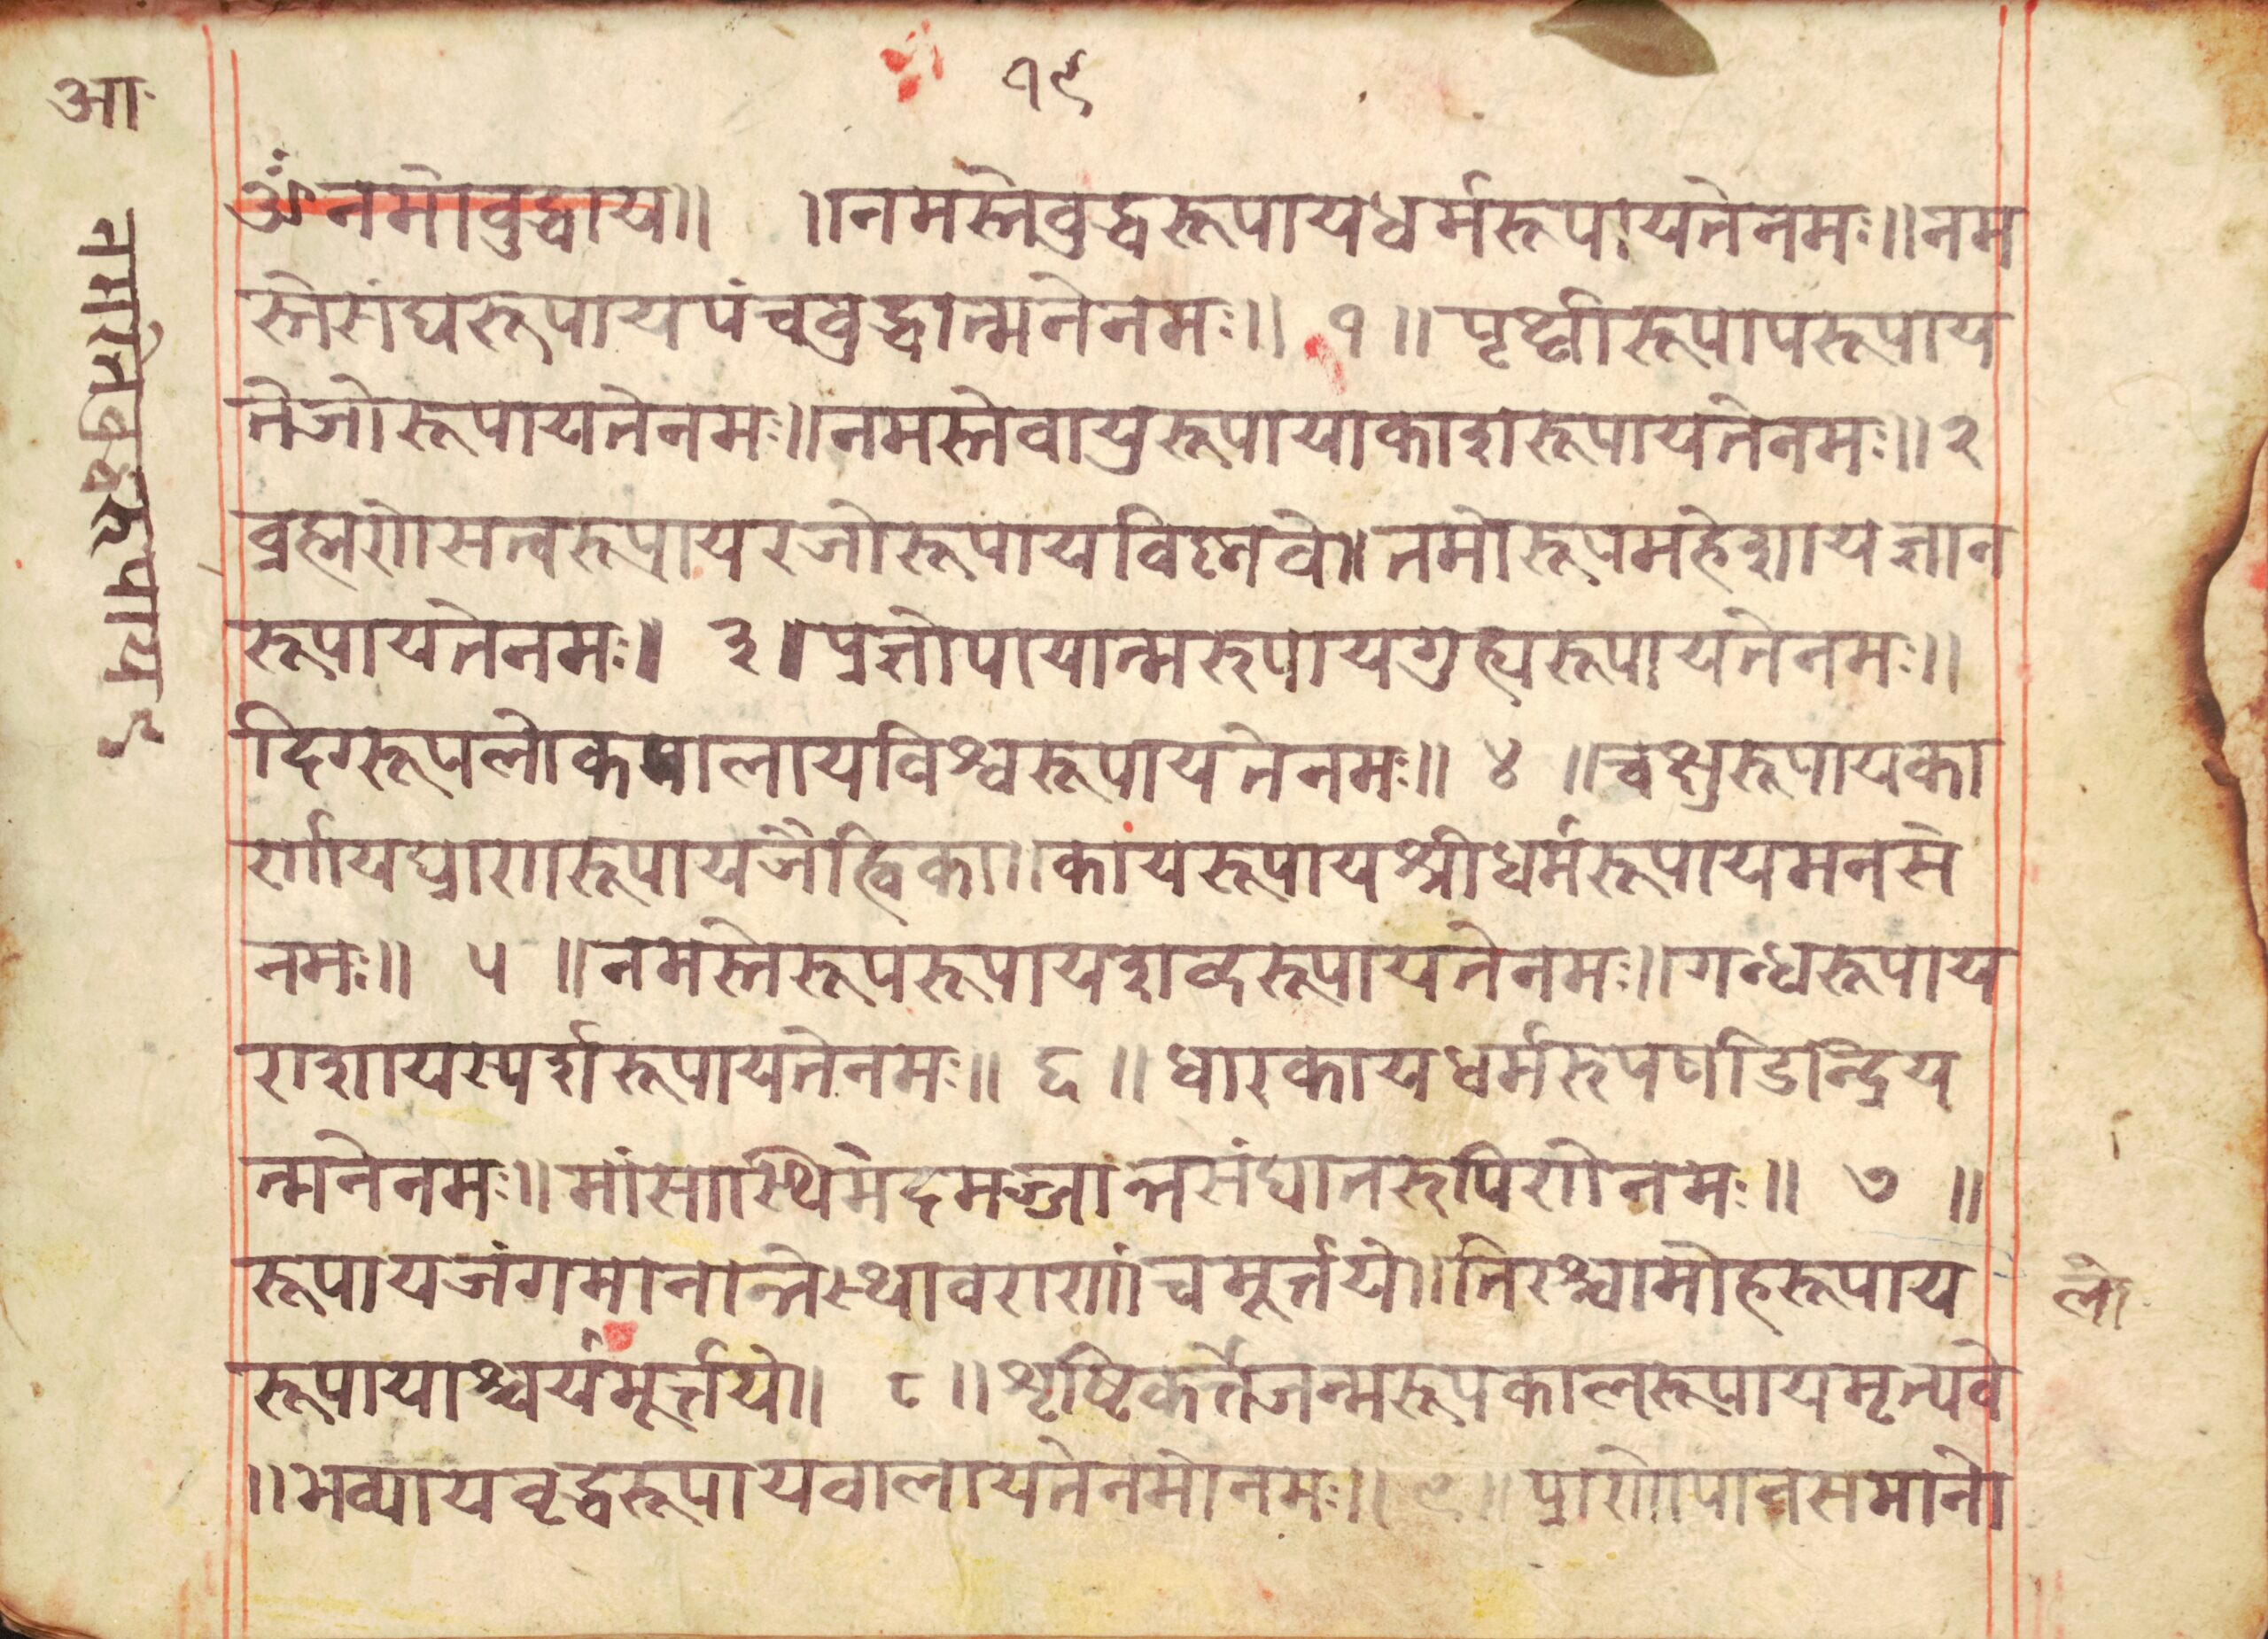 १९
आ
ॐ नमो वुद्धाय॥ ॥नमस्तेवुद्धरूपायधर्मरूपायतेनमः॥नम
स्तेसंघरूपायपंचवुद्धात्मनेनमः॥ १ ॥ पृथ्वीरूपापरूपाय
तेजोरूपायतेनमः॥नमस्तेवायुरूपायाकाशरूपायतेनमः॥२
व्रह्मणेसत्वरूप्रायरजोरूपायविष्णवे॥नमोरूपमहेशायज्ञान
रूपायतेनमः॥ ३॥प्रज्ञोपायात्मरुपायगुह्यरूपायतेनमः॥
दिग्रूपलोकपालायविश्वरूपायतेनमः॥ ४ ॥चक्षुरूपायका
र्णायघ्राणरूपायजैह्विका॥कायरूपायश्रीधर्मरूपायमनसे
नमः॥ ५ ॥नमस्तेरूपरूपायशव्दरूपायतेनमः॥गन्धरूपाय
राशायस्पर्शरूपायतेनमः॥ ६ ॥धारकायधर्मरुपषडिन्द्रिय
त्मनेनमः॥मांसास्थिमेदमज्जान्तसंघातरुपिणेनमः॥ ७ ॥
रूपायजंगमानान्तेस्थावराणांचमूर्त्तये॥तिरश्चामोहरूपाय
रूपायाश्चर्यमूर्त्तये॥ ८ ॥शृष्टिकर्त्तेजन्मरूपकालरूपायमृत्यवे
॥भव्यायवृद्धरूपायवालायतेनमोनमः॥ ९॥ प्राणोपानसमानो
नमस्तेवुद्धरूपाय